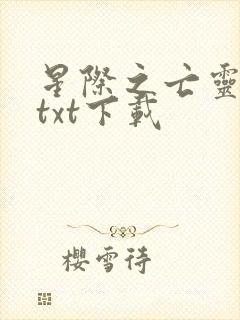 星際之亡靈
txt下載
櫻雪待